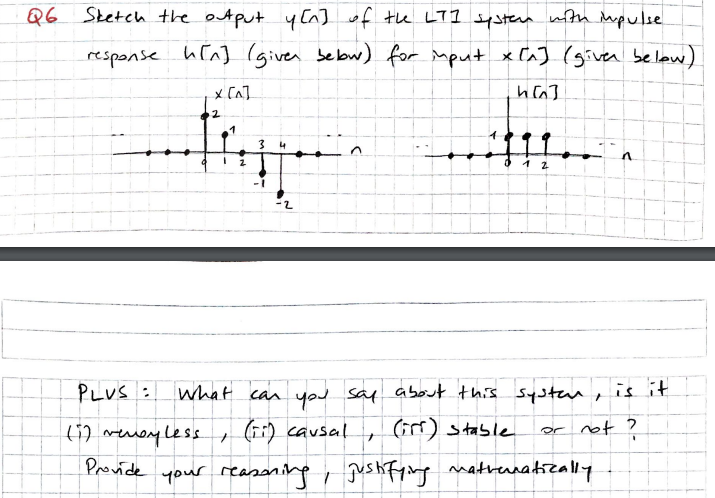 Q6 Sketch the output y[n] of the LTI system with impulse
response h[n] (given below) for input x[n] (given below)
x[n]
2
1
3 4
n
0 1 2
-1
-2
h[n]
1
n
0 1 2
PLUS : What can you say about this system, is it
(i) memoyless, (ii) causal, (iii) stable or not ?
Provide your reasoning, justifying mathematically.